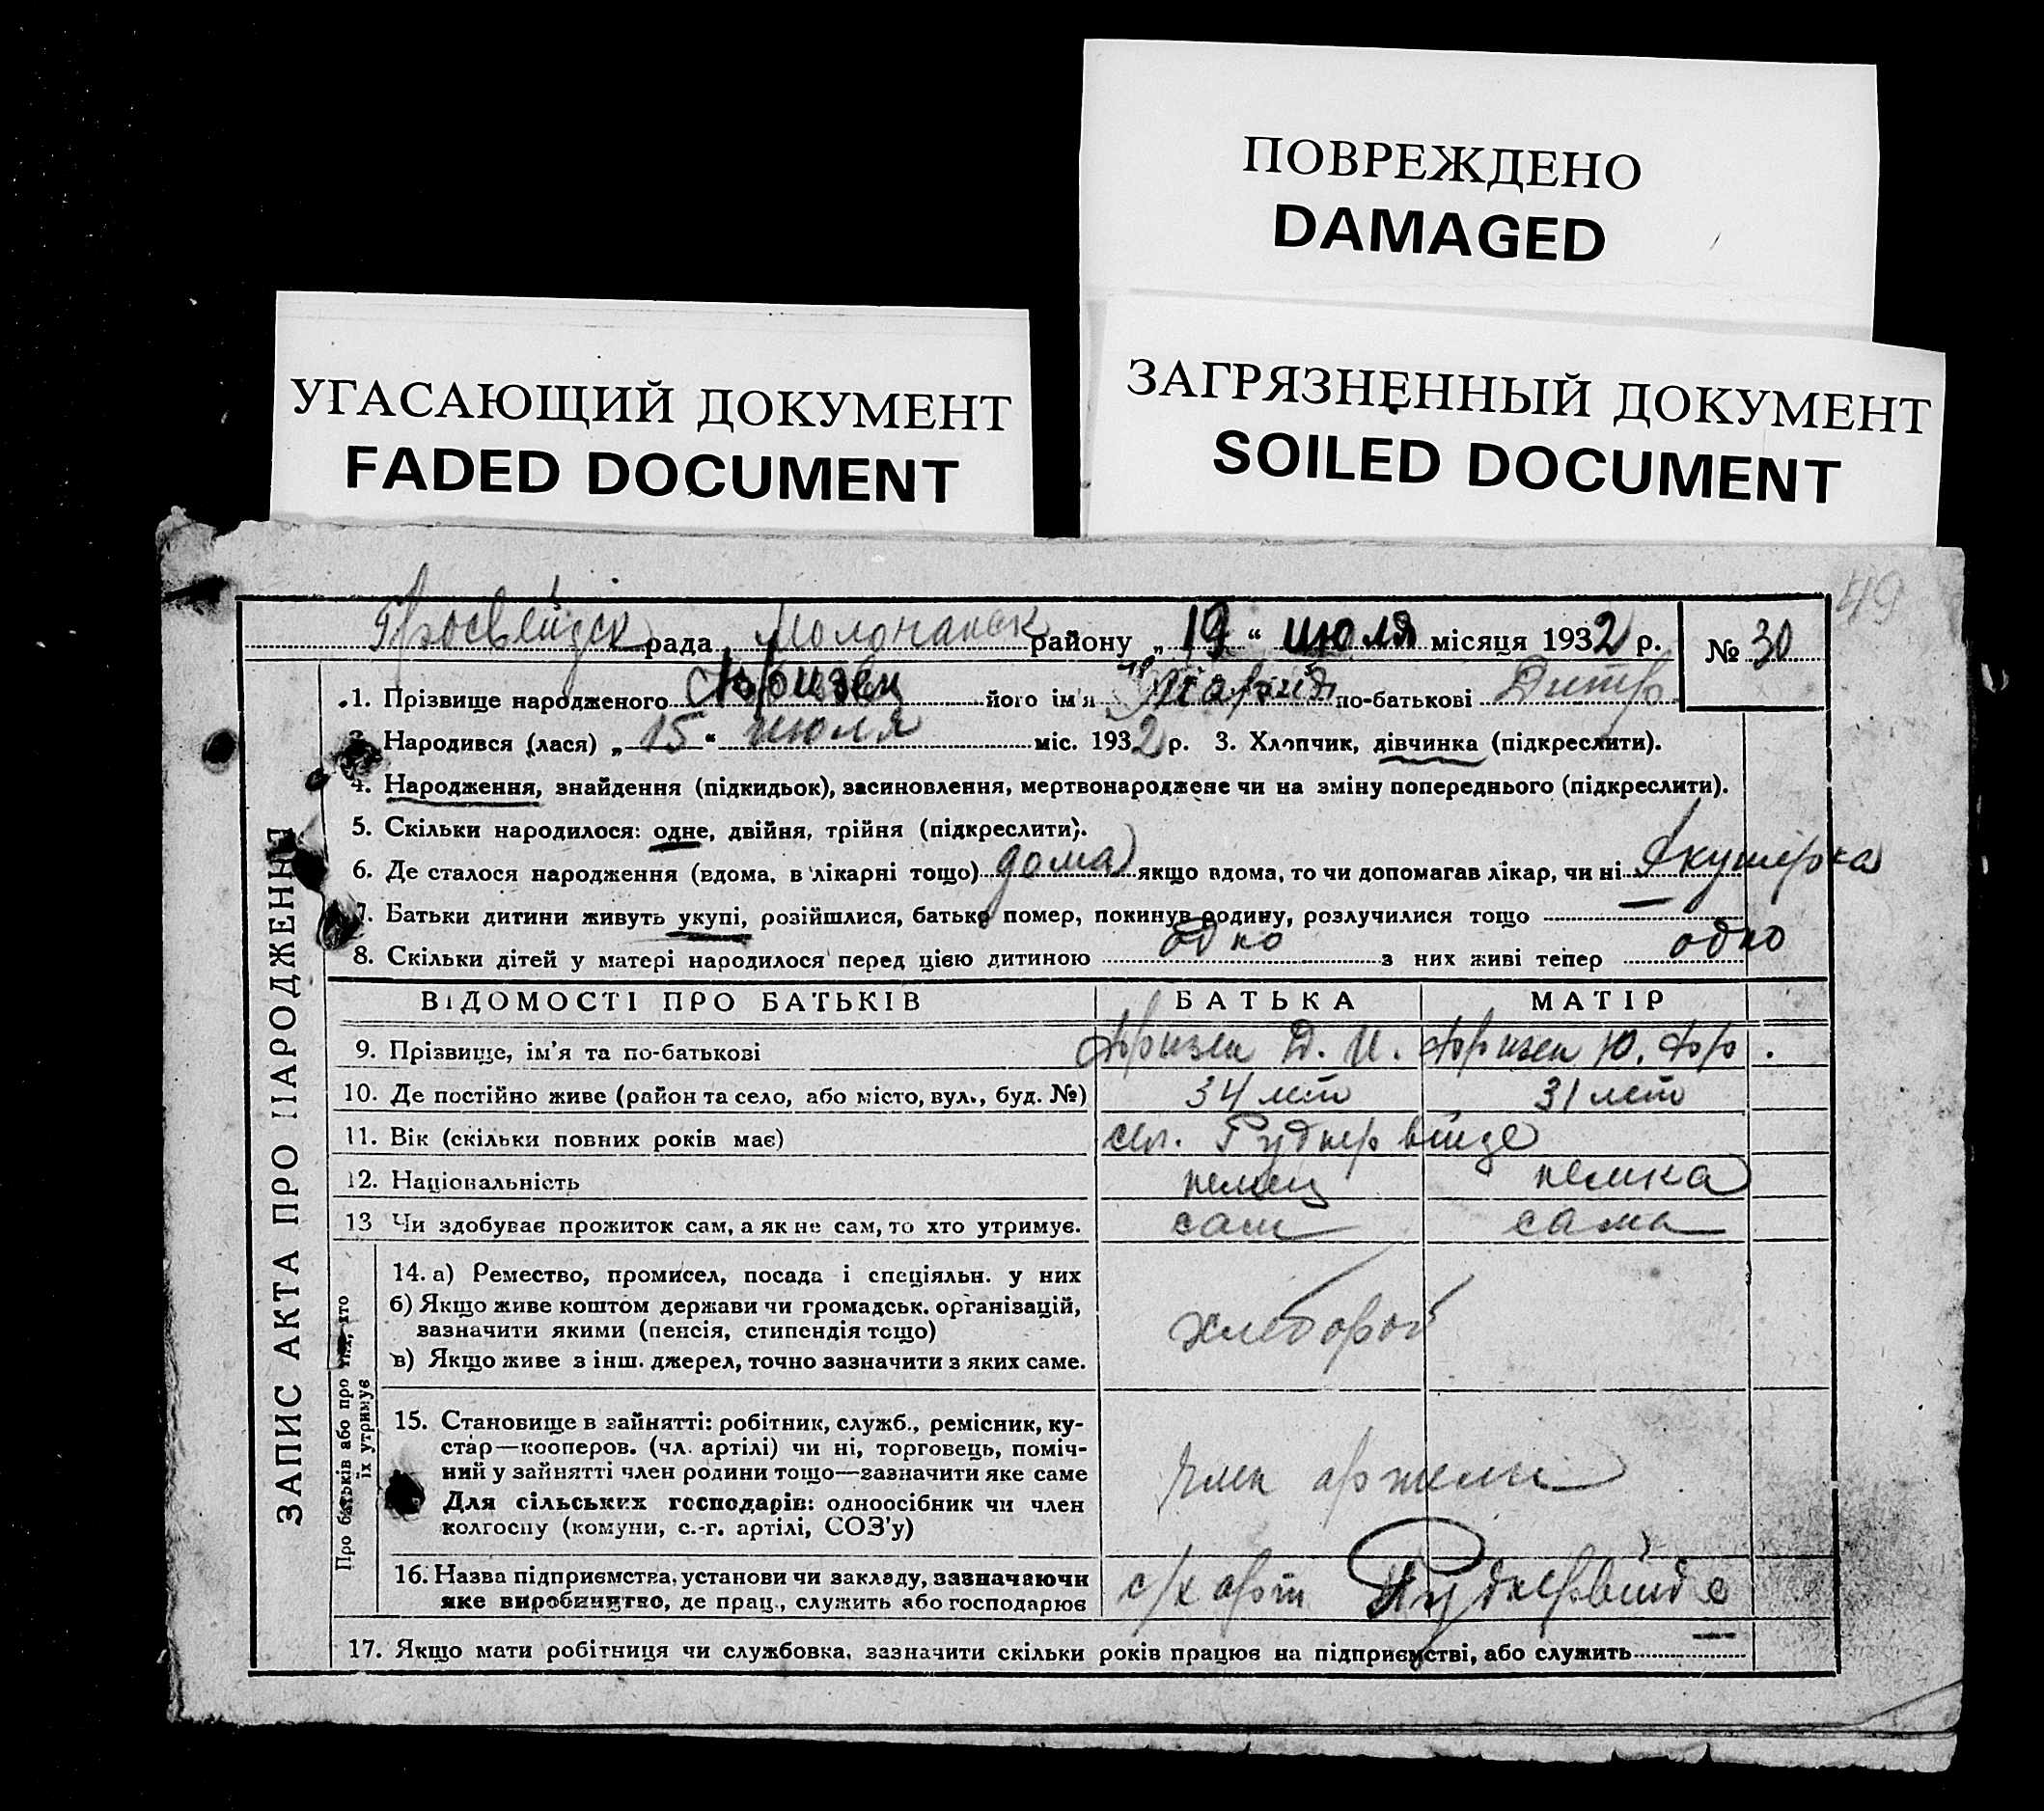 ПОВРЕЖДЕНО
DAMAGED
УГАСАЮЩИЙ ДОКУМЕНТ
FADED DOCUMENT
ЗАГРЯЗНЕННЫЙ ДОКУМЕНТ
SOILED DOCUMENT
49
рада Молочанск району „19“ июля місяця 1932 р. № 30
1. Прізвище народженого Фризен його ім'я по-батькові Дитр.
Народився (лася) „15“ июля міс. 1932 р. 3. Хлопчик, дівчинка (підкреслити).
4. Народження, знайдення (підкидьок), засиновлення, мертвонароджене чи на зміну попереднього (підкреслити).
5. Скільки народилося: одне, двійня, трійня (підкреслити).
6. Де сталося народження (вдома, в лікарні тощо) дома якщо вдома, то чи допомагав лікар, чи ні Акушерка
7. Батьки дитини живуть укупі, розійшлися, батько помер, покинув родину, розлучилися тощо —
8. Скільки дітей у матері народилося перед цією дитиною одно з них живі тепер одно
ЗАПИС АКТА ПРО НАРОДЖЕННЯ
ВІДОМОСТІ ПРО БАТЬКІВ БАТЬКА МАТІР
9. Прізвище, ім'я та по-батькові Фризен Д. И. Фризен Ю. Фр.
10. Де постійно живе (район та село, або місто, вул., буд. №) 34 лет 31 лет
11. Вік (скільки повних років має) сел. Рудкервейде
12. Національність немец немка
13 Чи здобуває прожиток сам, а як не сам, то хто утримує. сам сама
Про батьків або про тих, хто
їх утримує
14. а) Ремество, промисел, посада і спеціяльн. у них
б) Якщо живе коштом держави чи громадськ. організацій,
зазначити якими (пенсія, стипендія тощо)
в) Якщо живе з інш. джерел, точно зазначити з яких саме.
хлебороб
15. Становище в зайнятті: робітник, служб., ремісник, ку-
стар—кооперов. (чл. артілі) чи ні, торговець, поміч-
ний у зайнятті член родини тощо—зазначити яке саме
Для сільських господарів: одноосібник чи член
колгоспу (комуни, с.-г. артілі, СОЗ'у)
член артели
16. Назва підприємства, установи чи закладу, зазначаючи
яке виробництво, де прац., служить або господарює
с/х арт. Рудкервейде
17. Якщо мати робітниця чи службовка, зазначити скільки років працює на підприємстві, або служить —